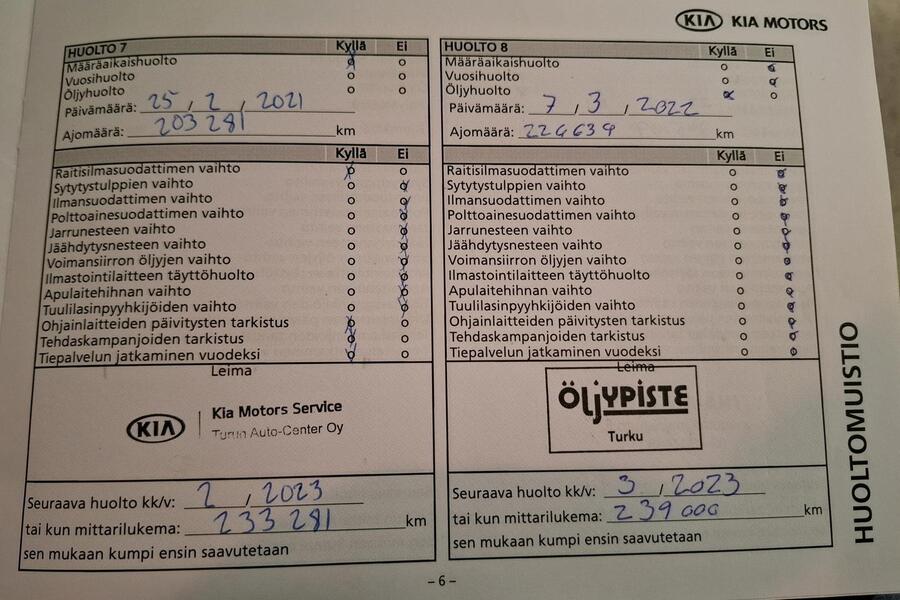 KIA KIA MOTORS
HUOLTO 7 Kyllä Ei
Määräaikaishuolto
Vuosihuolto
Öljyhuolto
Päivämäärä: 25 , 2 , 2021
Ajomäärä: 203 281 km
Kyllä Ei
Raitisilmasuodattimen vaihto
Sytytystulppien vaihto
Ilmansuodattimen vaihto
Polttoainesuodattimen vaihto
Jarrunesteen vaihto
Jäähdytysnesteen vaihto
Voimansiirron öljyjen vaihto
Ilmastointilaitteen täyttöhuolto
Apulaitehihnan vaihto
Tuulilasinpyyhkijöiden vaihto
Ohjainlaitteiden päivitysten tarkistus
Tehdaskampanjoiden tarkistus
Tiepalvelun jatkaminen vuodeksi
Leima
KIA Kia Motors Service
Turun Auto-Center Oy
Seuraava huolto kk/v: 2 , 2023
tai kun mittarilukema: 233 281 km
sen mukaan kumpi ensin saavutetaan
HUOLTO 8 Kyllä Ei
Määräaikaishuolto
Vuosihuolto
Öljyhuolto
Päivämäärä: 7 , 3 , 2022
Ajomäärä: 224639 km
Kyllä Ei
Raitisilmasuodattimen vaihto
Sytytystulppien vaihto
Ilmansuodattimen vaihto
Polttoainesuodattimen vaihto
Jarrunesteen vaihto
Jäähdytysnesteen vaihto
Voimansiirron öljyjen vaihto
Ilmastointilaitteen täyttöhuolto
Apulaitehihnan vaihto
Tuulilasinpyyhkijöiden vaihto
Ohjainlaitteiden päivitysten tarkistus
Tehdaskampanjoiden tarkistus
Tiepalvelun jatkaminen vuodeksi
Leima
ÖLJYPISTE
Turku
Seuraava huolto kk/v: 3 , 2023
tai kun mittarilukema: 239 000 km
sen mukaan kumpi ensin saavutetaan
HUOLTOMUISTIO
– 6 –